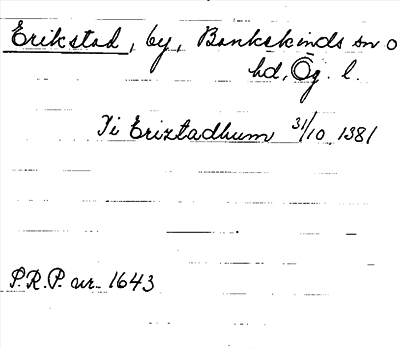 Erikstad, by, Bankekinds sn o
hd, Ög. l.
Ti Erixtadhum 31/10 1381
P.R.P. nr. 1643